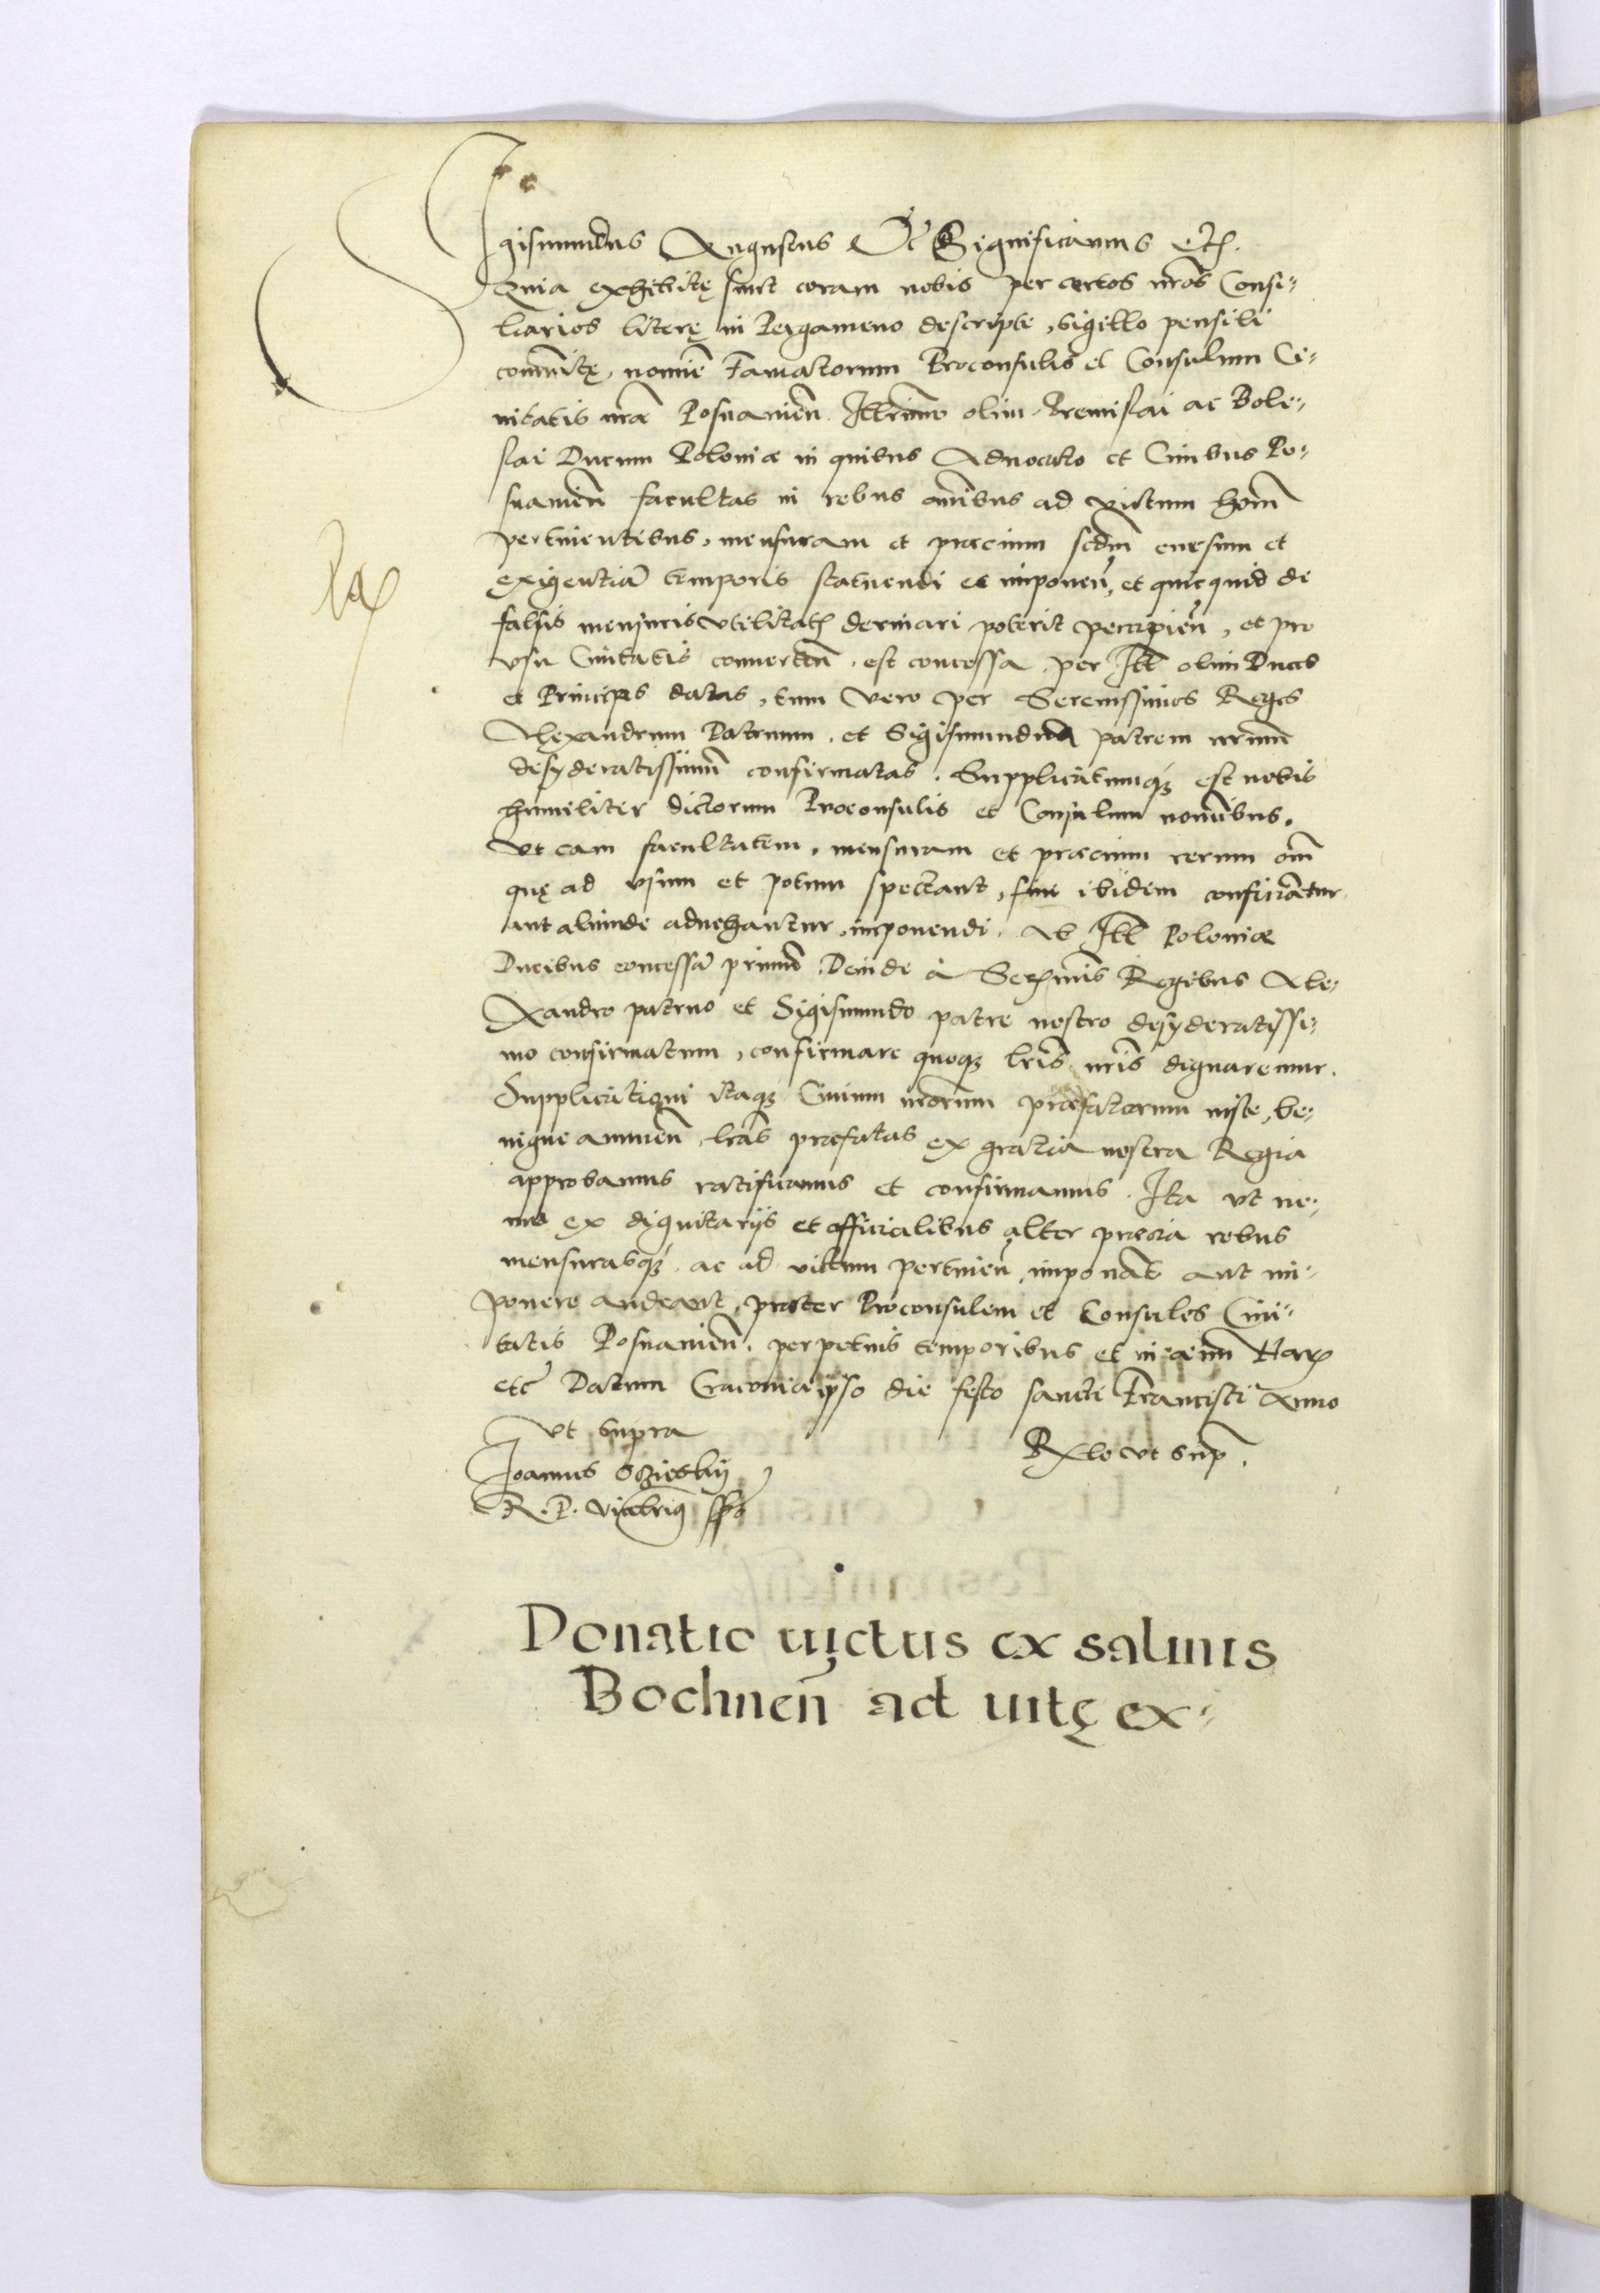 Sigismundus Augustus Dei Significamus etc.
Quia exhibitę sunt coram nobis per certos nros Consi-
liarios literę in Pergameno descripte, sigillo pensili
comunitę, nomine Famatorum Proconsulis et Consulum Ci-
uitatis nræ Posnanien Illrium olim Premislai ac Bole-
slai Ducum Poloniæ in quibus Aduocato et Ciuibus Po-
snanien facultas in rebus omibus ad victum homin
pertinentibus, mensuram et præcium scdm cursum et
exigentiā temporis statuendi et imponen, et quicquid de
falsis mensuris vtilitatis deriuari poterit percipien, et pro
vsu Ciuitatis conuerten, est concessa per Ill olim Duces
et Principes datas, tum vero per Serenissimos Reges
Alexandrum Patruum, et Sigismundum patrem nrum
desyderatissimum confirmatas. Supplicatumq; est nobis
humiliter dictorum Proconsulis et Consulum nominibus,
vt eam facultatem, mensuram et præcium rerum oim
quę ad vsum et potum spectant, siue ibidem conficiātur
aut aliunde aduehantur, imponendi, Ab Ill Poloniæ
Ducibus concessā primum, Deinde à Sermis Regibus Ale-
xandro patruo et Sigismundo patre nostro desyderatissi-
mo confirmatum, confirmare quoq; lris nris dignaremur.
Supplicationi itaq; Ciuium nrorum præfatorum iuste, be-
nigne annuen, lras præfatas ex gratia nostra Regia
approbamus ratificamus et confirmamus. Ita vt ne-
mo ex dignitarijs et officialibus alter præcia rebus
mensurasq; ac ad victum pertinen, imponāt aut im-
ponere audeant, præter Proconsulem et Consules Ciui-
tatis Posnanien. perpetuis temporibus et in æuum Harū
etc Datum Cracouiæ ipso die festo sancti Francisci Anno
vt supra
Joannes Oczieskij
R. P. Vicecancrius sst
Rxlo vt sup.
Donatio uictus ex salinis
Bochnen ad uitę ex-